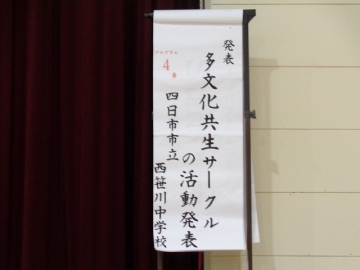 発表
多文化共生サークル
の活動発表
プログラム
4
番
四日市市立
西笹川中学校